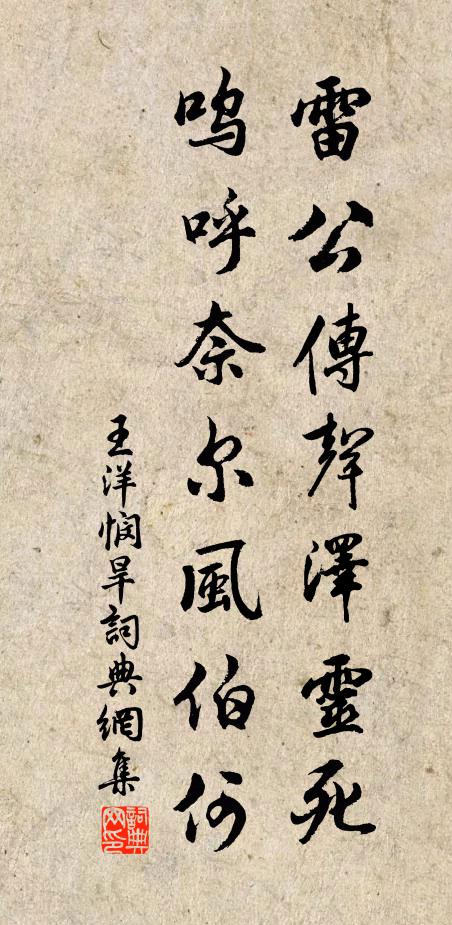 雷公傳聲澤靈死
嗚呼奈尔風伯何
王洋憫旱詞典網集
詞典網印